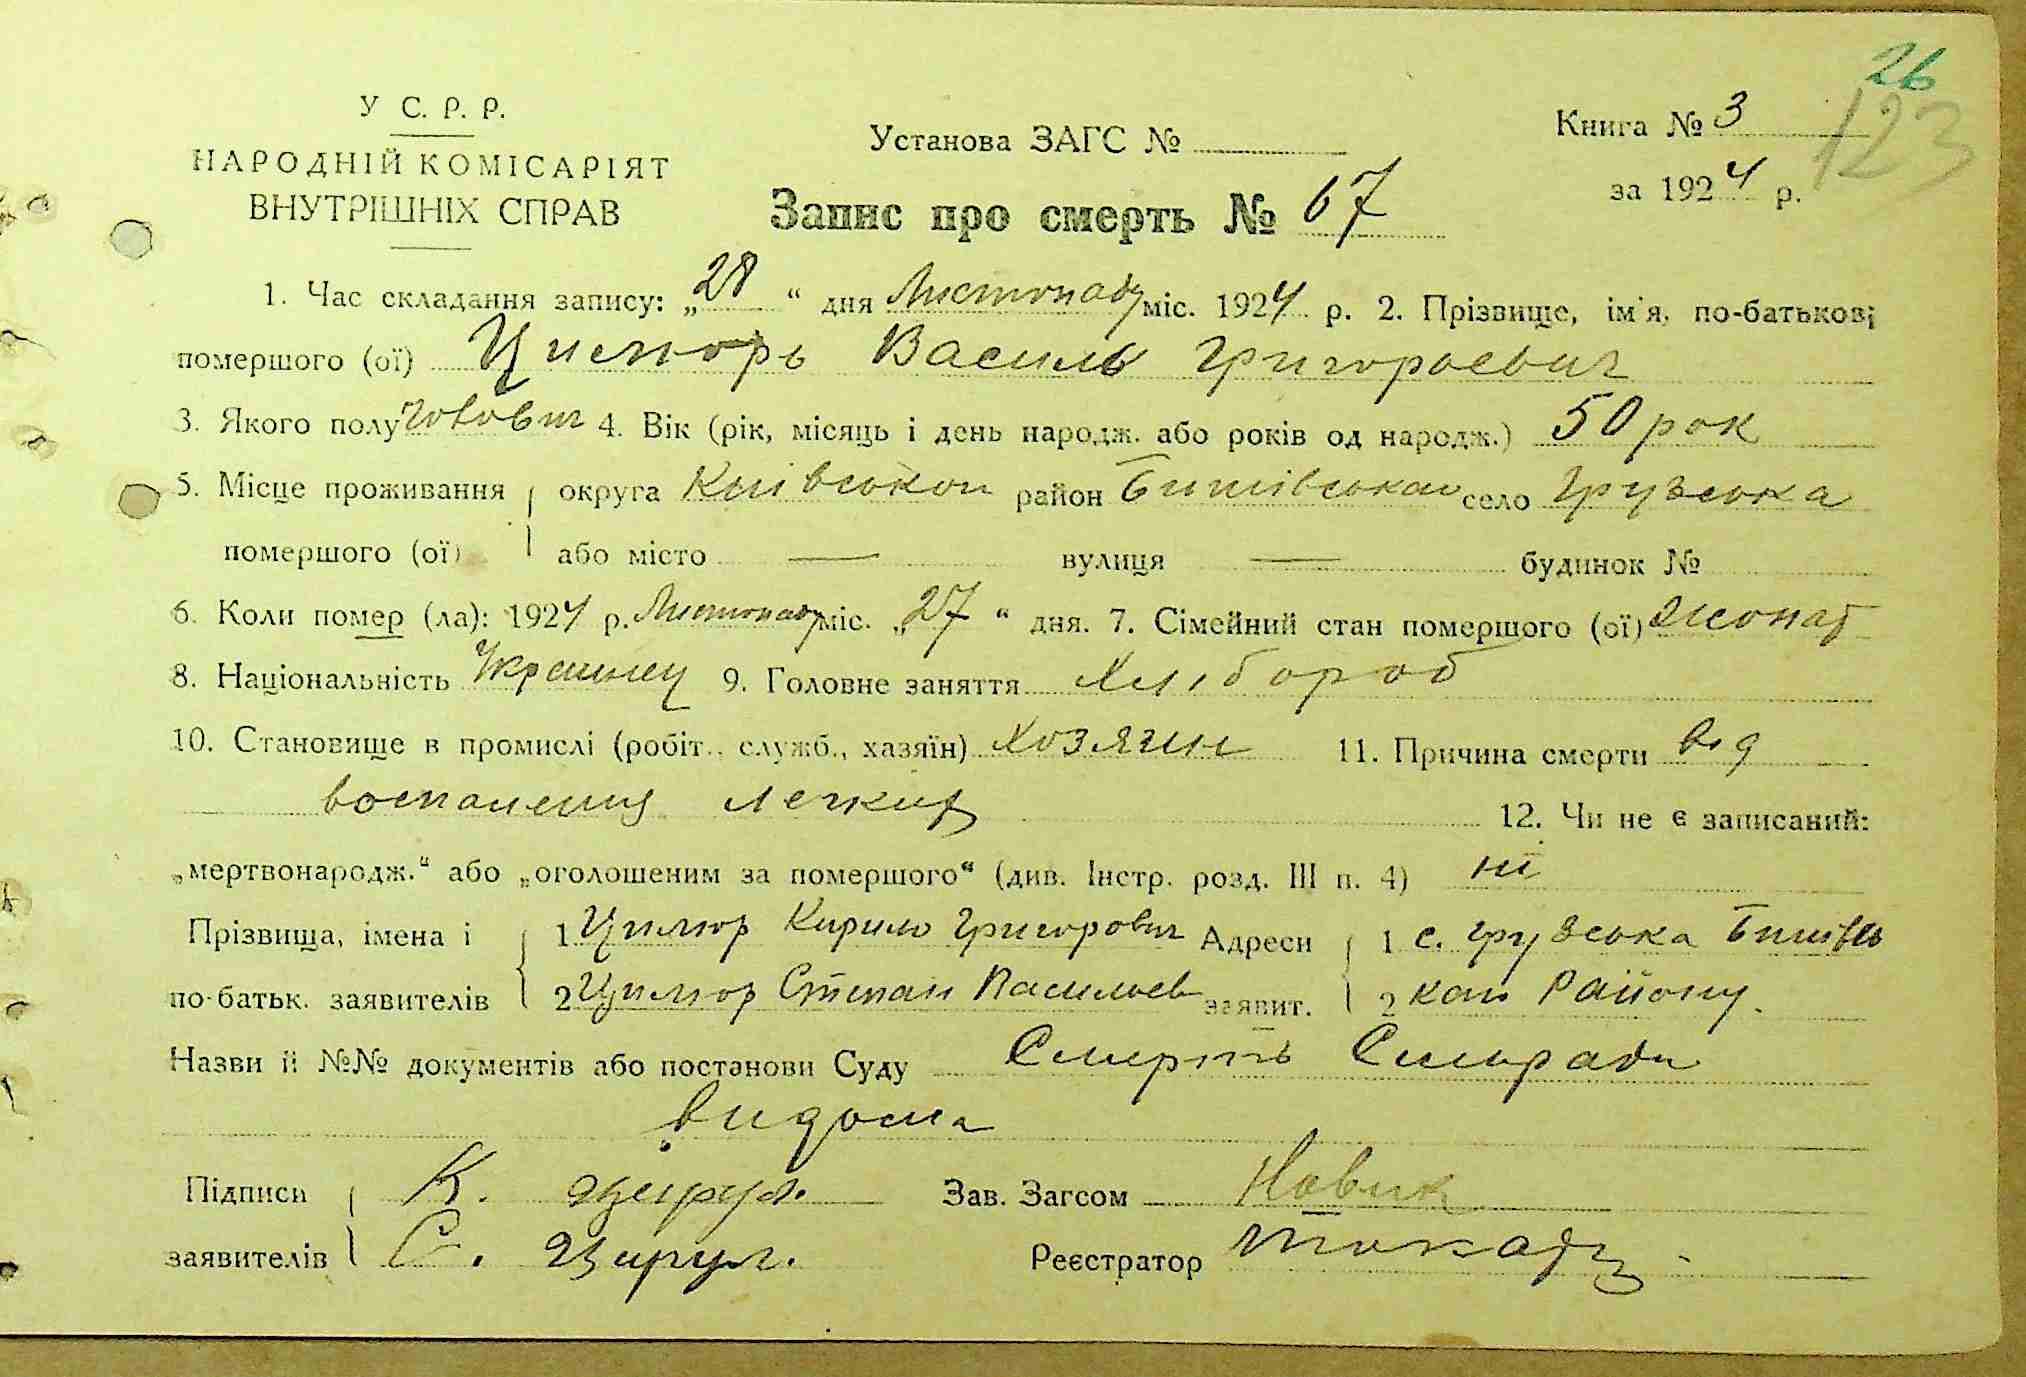 26
123
У С. Р. Р.
НАРОДНІЙ КОМІСАРІЯТ
ВНУТРІШНІХ СПРАВ
Установа ЗАГС №
Книга № 3
за 1924 р.
Запис про смерть № 67
1. Час складання запису: „28 “ дня Листопаду міс. 1924 р. 2. Прізвище, ім'я, по-батькові
помершого (ої) Цимморь Василь Григорьевич
3. Якого полу Чолович 4. Вік (рік, місяць і день народж. або років од народж.) 50 рок
5. Місце проживання округа Київськой район Бишівськой село Грузська
помершого (ої) або місто — вулиця — будинок №
6. Коли помер (ла): 1924 р. Листопаду міс. „27 “ дня. 7. Сімейний стан помершого (ої) жонат
8. Національність Украинец 9. Головне заняття Хлібороб
10. Становище в промислі (робіт., служб., хазяїн) Хозяин 11. Причина смерти від
воспаления легких
12. Чи не є записаний:
„мертвонародж.“ або „оголошеним за помершого“ (див. Інстр. розд. III п. 4) ні
Прізвища, імена і 1 Кирило Григорович Адреси 1 с. Грузська Бишівсь
по-батьк. заявителів 2 Степан Васильев заявит. 2 кого Району.
Назви й №№ документів або постанови Суду Смерть Сильради
видома
Підписи К. Зав. Загсом Новик
заявителів С. Реєстратор